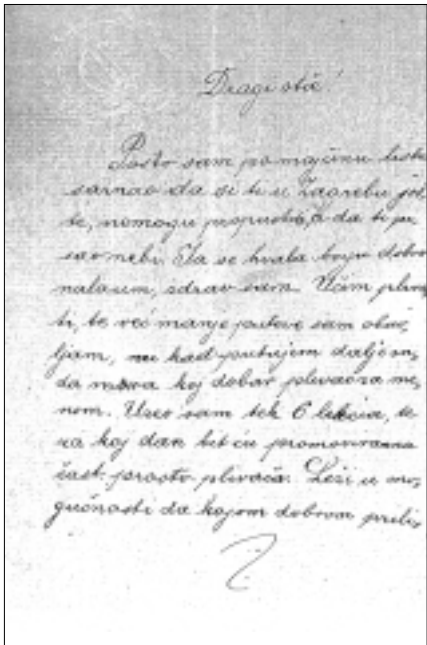 Dragi otče!
Pošto sam po majčinu listu
saznao da si ti u Zagrebu još
te, nemogu propustit, a da ti pi
sao nebi. Ja se hvala bogu dobro
nalazim, zdrav sam. Učim pliva
ti, te već manje puteve sam obav
ljam, no kad putujem dalje on
da mora koj dobar plivač za me
nom. Uzeo sam tek 6 lekcia, te
za koj dan bit ću promoviran na
čast prostog plivača. Leži u mo
gućnosti da kojom dobrom prili